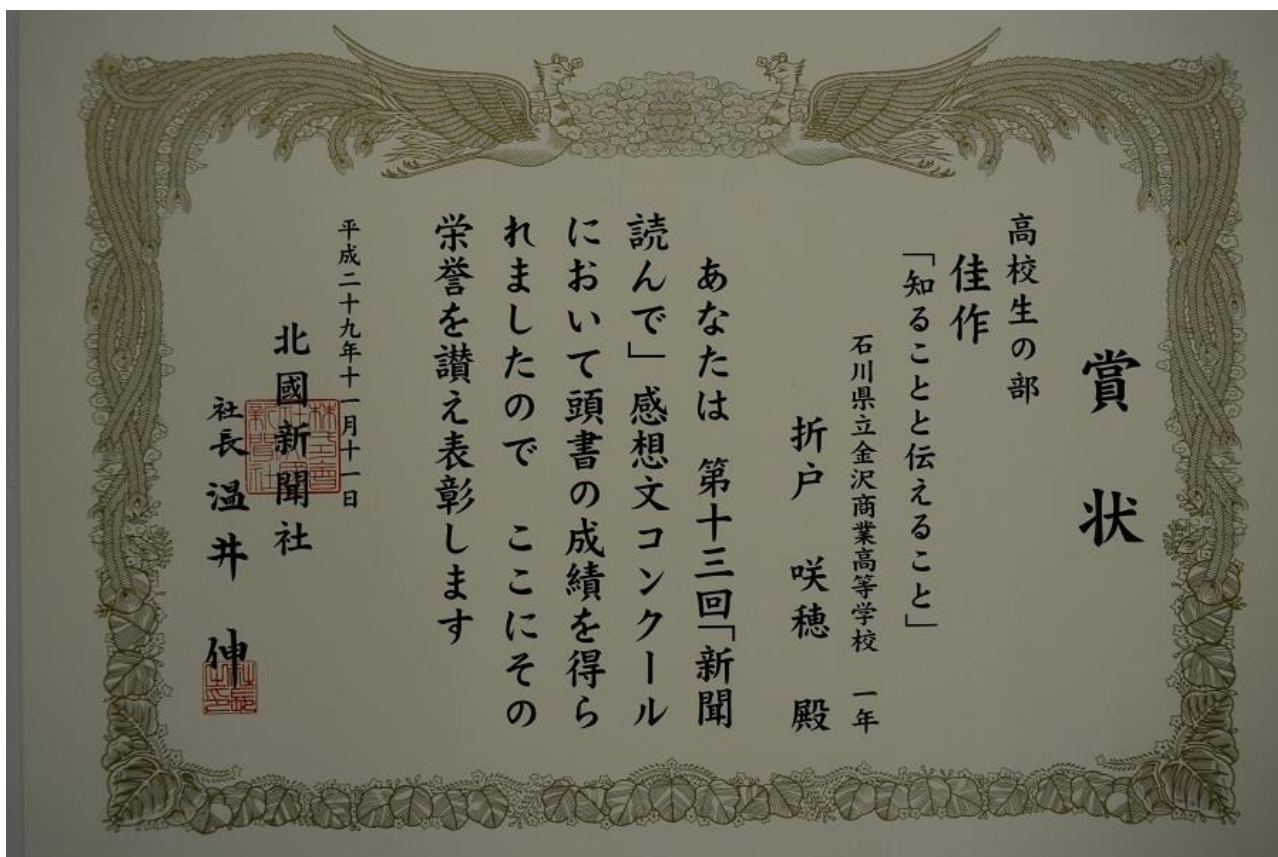 賞状
高校生の部
佳作
「知ることと伝えること」
石川県立金沢商業高等学校 一年
折戸 咲穂 殿
あなたは 第十三回「新聞
読んで」感想文コンクール
において頭書の成績を得ら
れましたので ここにその
栄誉を讃え表彰します
平成二十九年十一月十一日
北國新聞社
社長 温井 伸